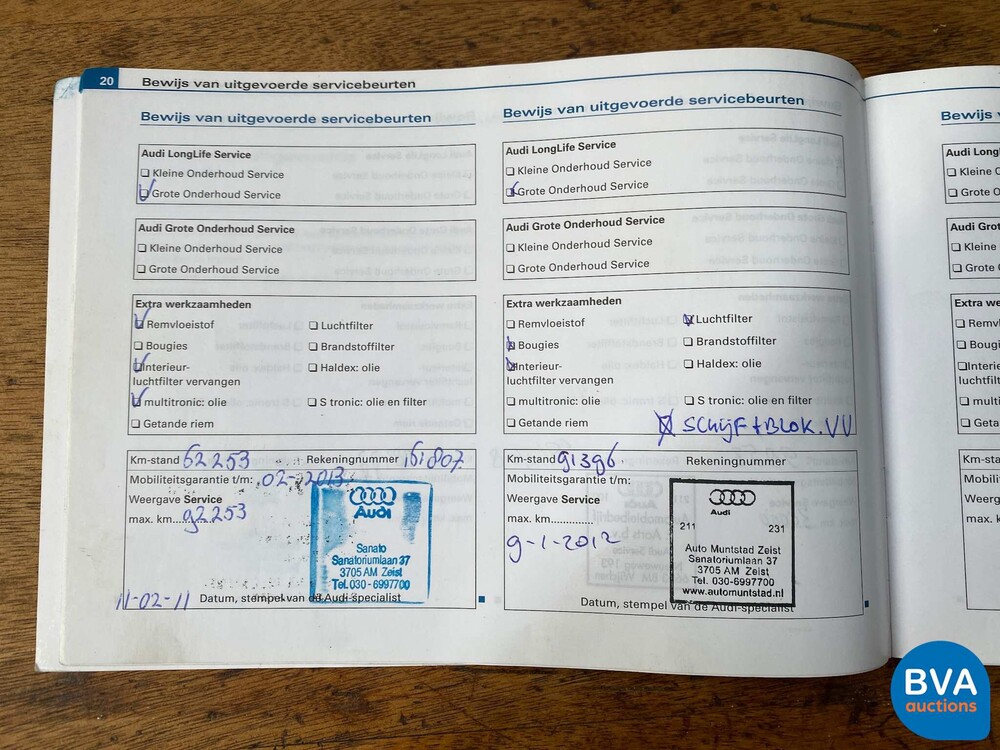 20
Bewijs van uitgevoerde servicebeurten
Bewijs van uitgevoerde servicebeurten
Audi LongLife Service
Kleine Onderhoud Service
Grote Onderhoud Service
Audi Grote Onderhoud Service
Kleine Onderhoud Service
Grote Onderhoud Service
Extra werkzaamheden
Remvloeistof
Luchtfilter
Bougies
Brandstoffilter
Interieur-
luchtfilter vervangen
Haldex: olie
multitronic: olie
S tronic: olie en filter
Getande riem
Km-stand 62253
Rekeningnummer 161807
Mobiliteitsgarantie t/m: 02-2013
Weergave Service
max. km. 92253
Audi
Sanato
Sanatoriumlaan 37
3705 AM Zeist
Tel. 030-6997700
11-02-11
Datum, stempel van de Audi-specialist
Bewijs van uitgevoerde servicebeurten
Audi LongLife Service
Kleine Onderhoud Service
Grote Onderhoud Service
Audi Grote Onderhoud Service
Kleine Onderhoud Service
Grote Onderhoud Service
Extra werkzaamheden
Remvloeistof
Luchtfilter
Bougies
Brandstoffilter
Interieur-
luchtfilter vervangen
Haldex: olie
multitronic: olie
S tronic: olie en filter
Getande riem
Schijf + Blok. VV
Km-stand 91396.
Rekeningnummer
Mobiliteitsgarantie t/m:
Weergave Service
max. km..............
9-1-2012
Audi
211
231
Auto Muntstad Zeist
Sanatoriumlaan 37
3705 AM Zeist
Tel. 030-6997700
www.automuntstad.nl
Datum, stempel van de Audi-specialist
Bewijs v
Audi LongL
Kleine O
Grote On
Audi Grot
Kleine O
Grote O
Extra we
Remvlo
Bougies
Interie
luchtfil
multitr
Getand
Km-st
Mobili
Weerg
max. k
BVA
auctions